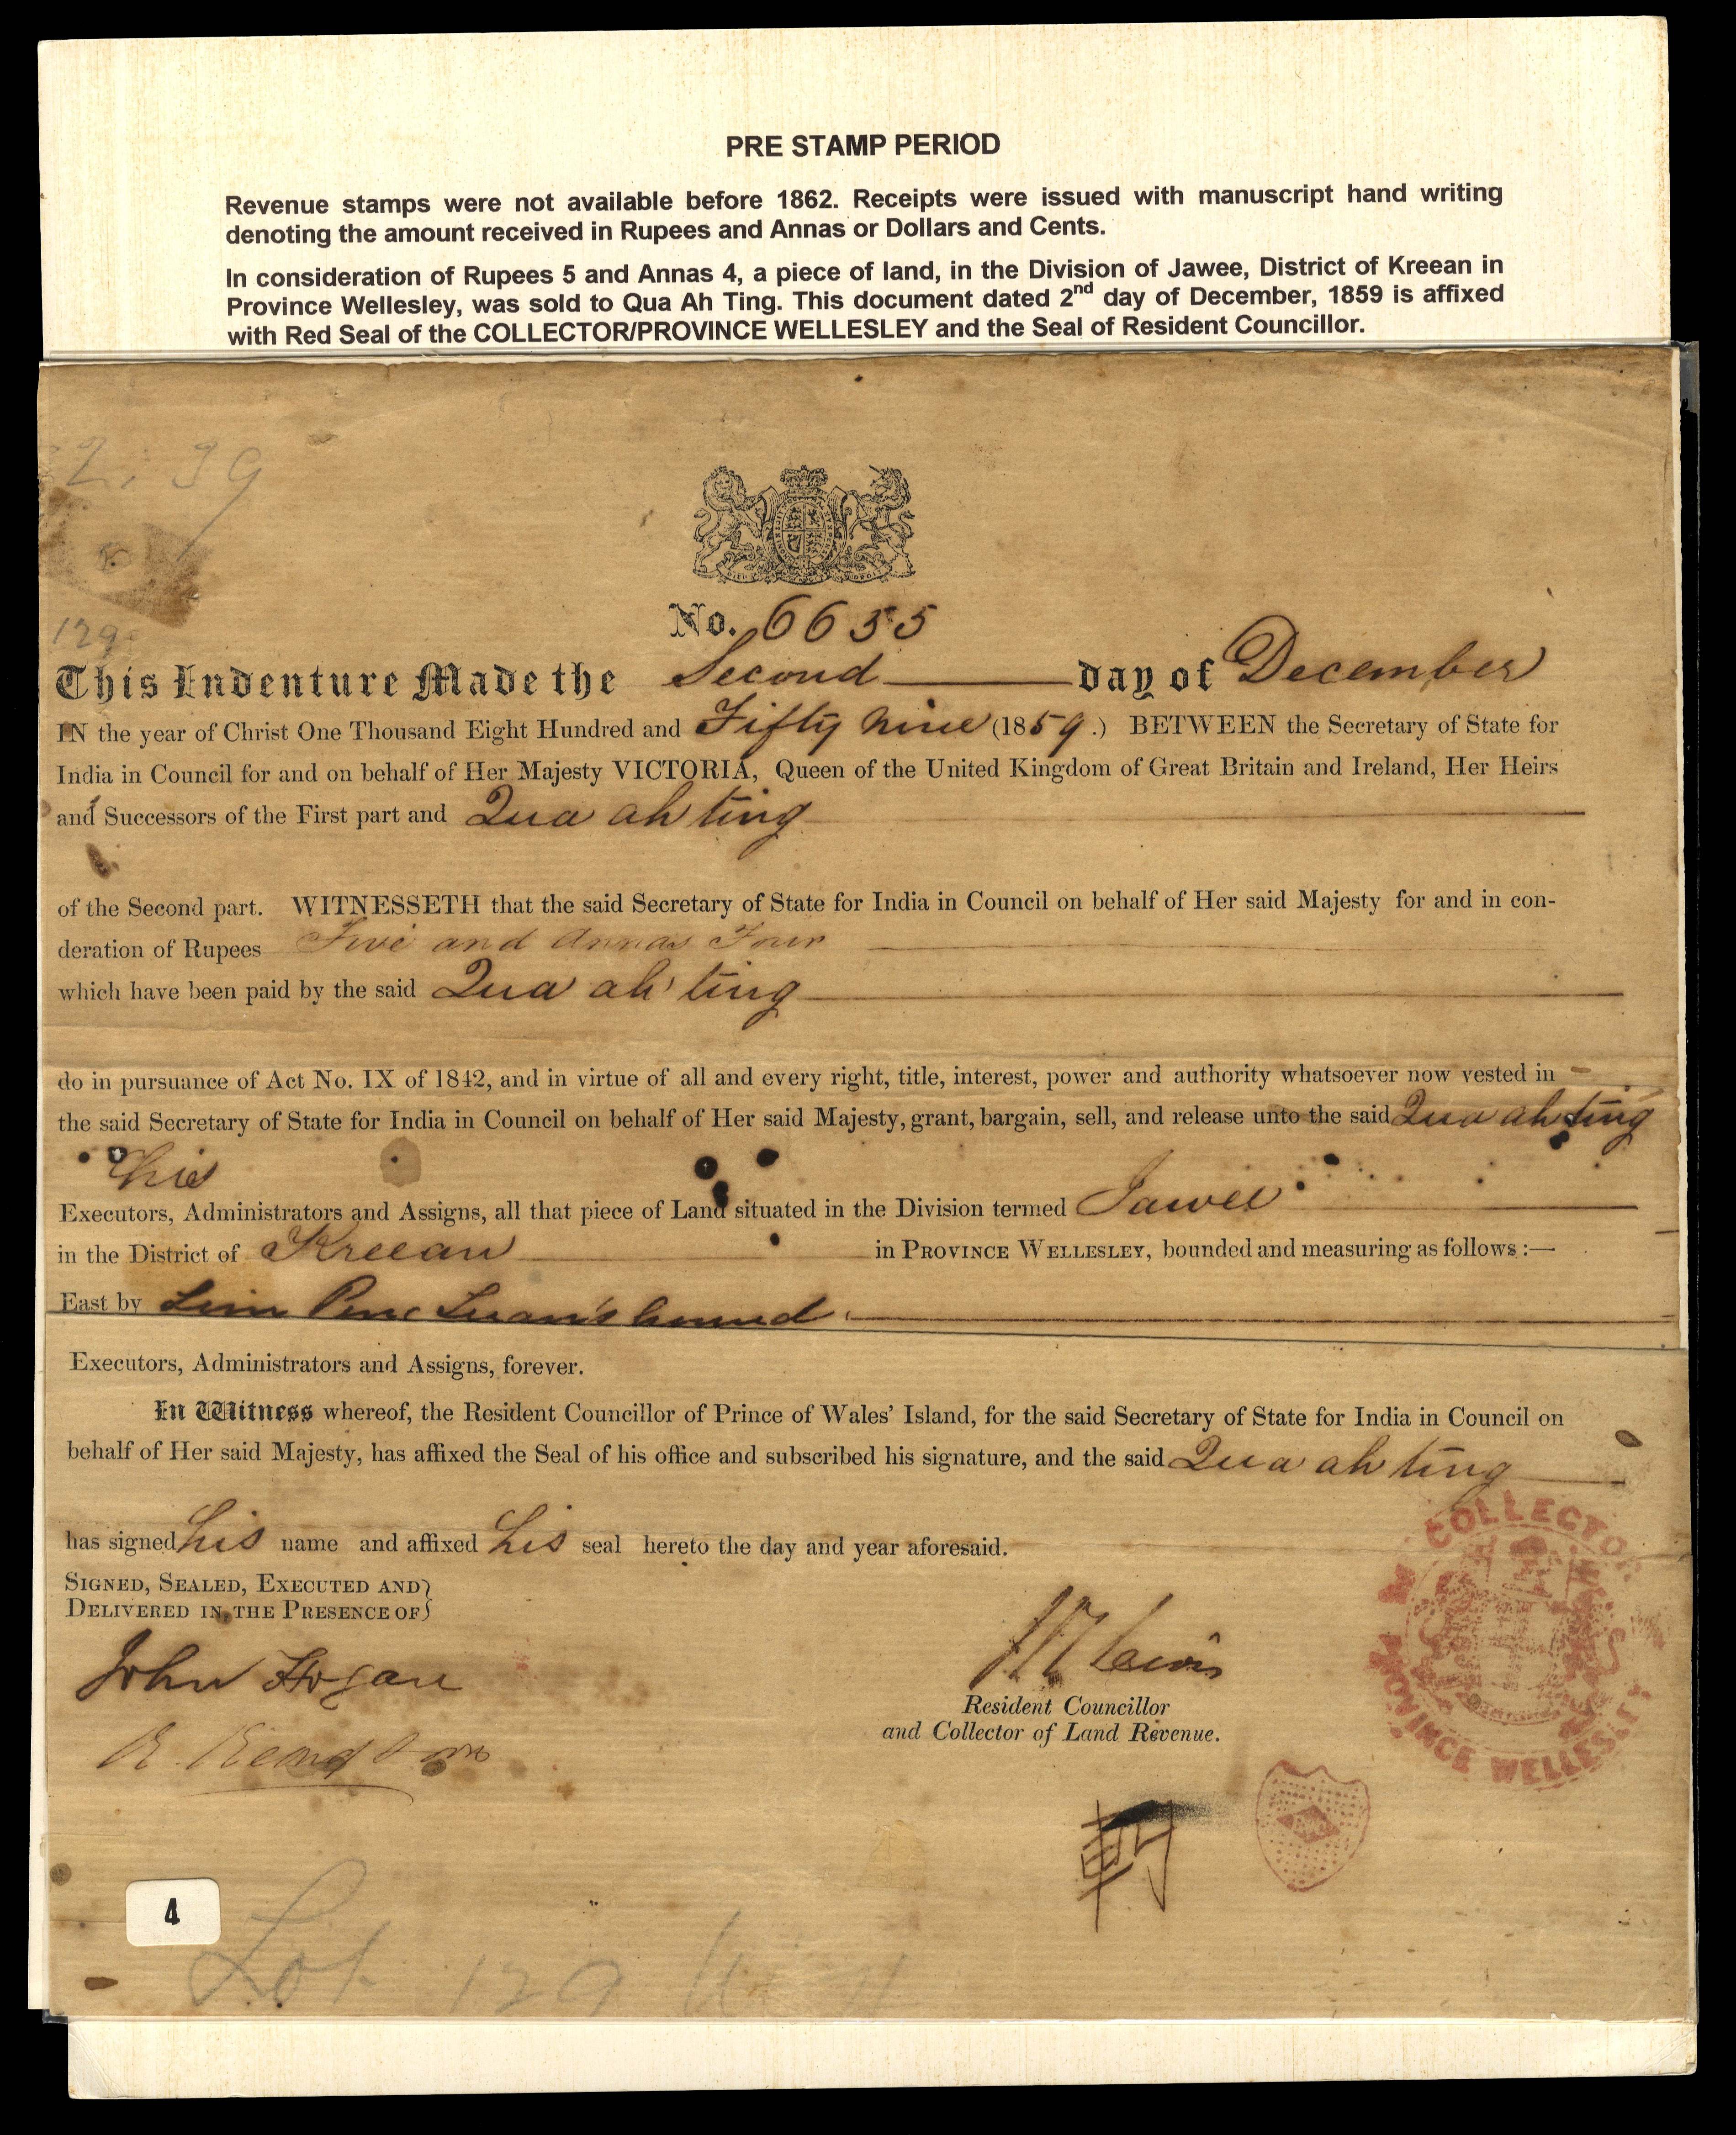 PRE STAMP PERIOD
Revenue stamps were not available before 1862. Receipts were issued with manuscript hand writing
denoting the amount received in Rupees and Annas or Dollars and Cents.
In consideration of Rupees 5 and Annas 4, a piece of land, in the Division of Jawee, District of Kreean in
Province Wellesley, was sold to Qua Ah Ting. This document dated 2nd day of December, 1859 is affixed
with Red Seal of the COLLECTOR/PROVINCE WELLESLEY and the Seal of Resident Councillor.
No. 6635
129
This Indenture Made the Second day of December
IN the year of Christ One Thousand Eight Hundred and Fifty nine (1859.) BETWEEN the Secretary of State for
India in Council for and on behalf of Her Majesty VICTORIA, Queen of the United Kingdom of Great Britain and Ireland, Her Heirs
and Successors of the First part and Qua ah ting
of the Second part. WITNESSETH that the said Secretary of State for India in Council on behalf of Her said Majesty for and in con-
deration of Rupees Five and Annas Four
which have been paid by the said Qua ah ting
do in pursuance of Act No. IX of 1842, and in virtue of all and every right, title, interest, power and authority whatsoever now vested in
the said Secretary of State for India in Council on behalf of Her said Majesty, grant, bargain, sell, and release unto the said Qua ah ting
his
Executors, Administrators and Assigns, all that piece of Land situated in the Division termed Jawee
in the District of Kreean in PROVINCE WELLESLEY, bounded and measuring as follows :—
East by Lim
Executors, Administrators and Assigns, forever.
In Witness whereof, the Resident Councillor of Prince of Wales' Island, for the said Secretary of State for India in Council on
behalf of Her said Majesty, has affixed the Seal of his office and subscribed his signature, and the said Qua ah ting
has signed his name and affixed his seal hereto the day and year aforesaid.
SIGNED, SEALED, EXECUTED AND
DELIVERED IN THE PRESENCE OF
John Hogan
Resident Councillor
and Collector of Land Revenue.
COLLECTOR
PROVINCE WELLESLEY
4
Lot 129